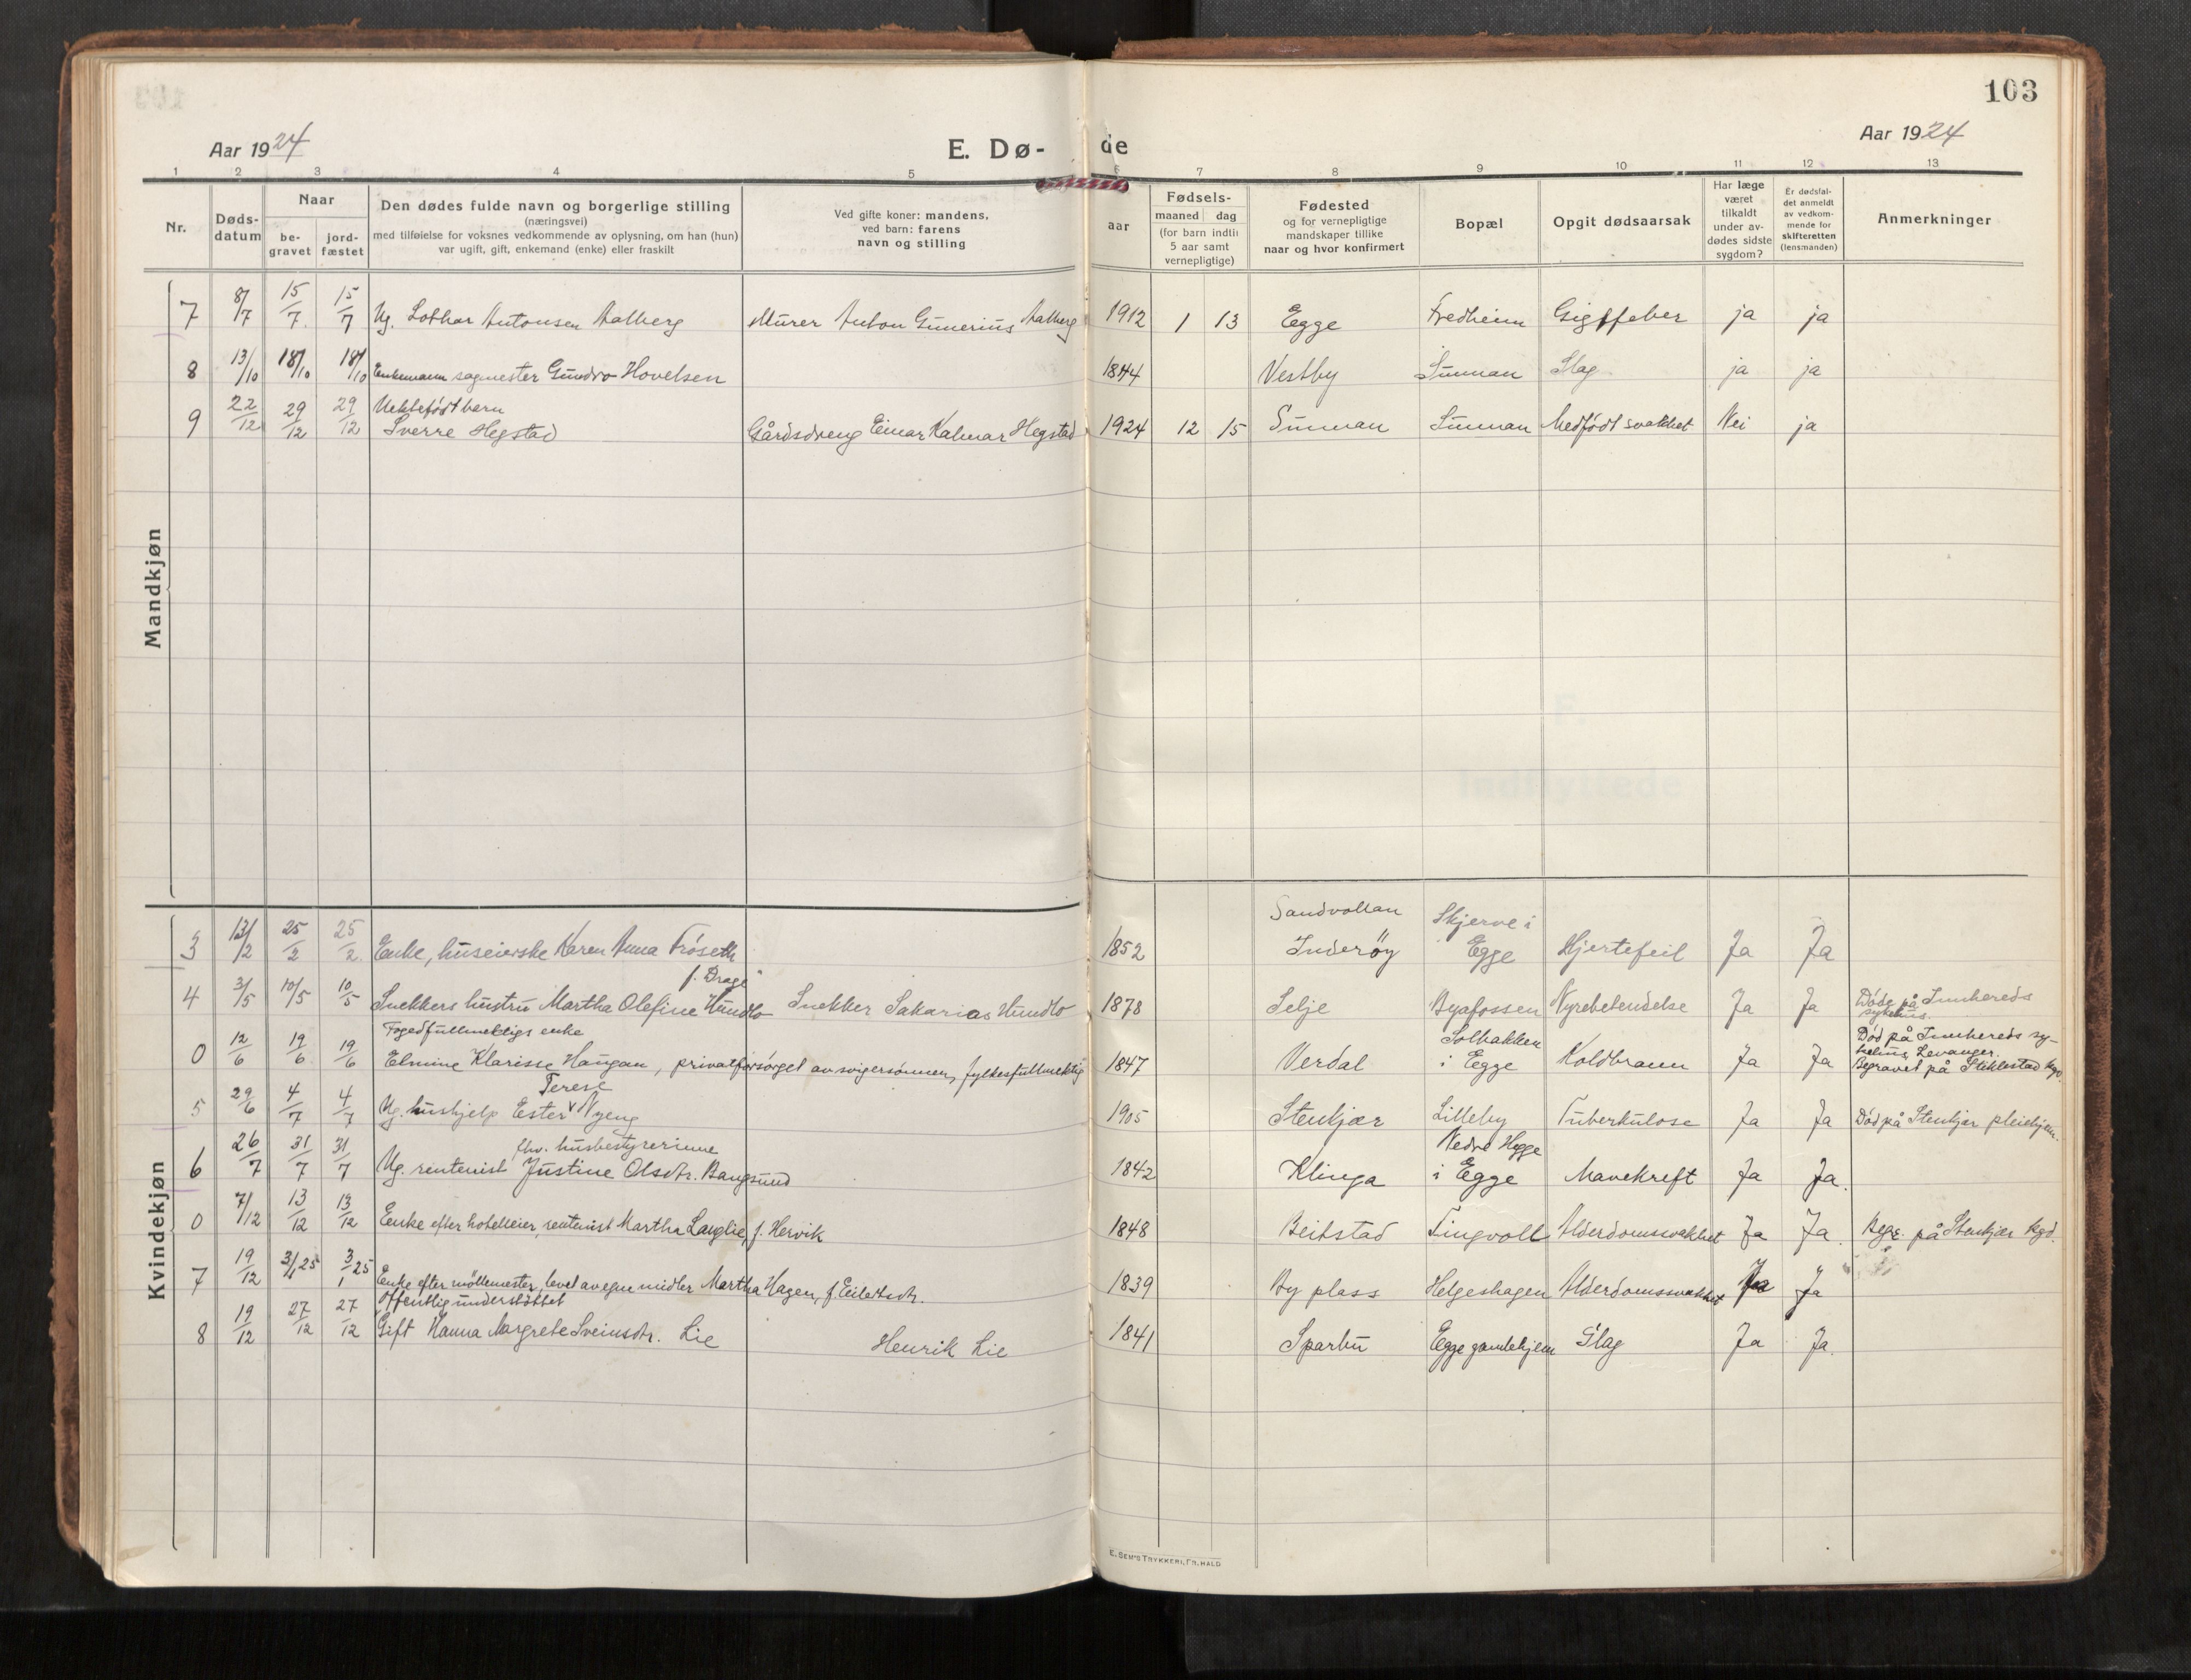 103
Aar 1924
E. Dø-
de
Aar 1924
1 2 3 4 5 6 7 8 9 10 11 12 13
Nr.
Døds-
datum
Naar
be-
gravet
jord-
fæstet
Den dødes fulde navn og borgerlige stilling
(næringsvei)
med tilføielse for voksnes vedkommende av oplysning, om han (hun)
var ugift, gift, enkemand (enke) eller fraskilt
Ved gifte koner: mandens,
ved barn: farens
navn og stilling
aar
Fødsels-
maaned dag
(for barn indtil
5 aar samt
vernepligtige)
Fødested
og for vernepligtige
mandskaper tillike
naar og hvor konfirmert
Bopæl
Opgit dødsaarsak
Har læge
været
tilkaldt
under av-
dødes sidste
sygdom?
Er dødsfal-
det anmeldt
av vedkom-
mende for
skifteretten
(lensmanden)
Anmerkninger
Mandkjøn
7 8/7 15/7 15/7 Ug. Lothar Antonsen Aalberg Murer Anton Gunerius Aalberg 1912 1 13 Egge Fredheim Gigtfeber ja ja
8 13/10 18/10 18/10 Enkemann sagmester Gundro Hovelsen 1844 Vestby Sunnan Slag ja ja
9 22/12 29/12 29/12 Uektefødt barn
Sverre Hegstad Gårdsdreng Einar Kalmar Hegstad 1924 12 15 Sunnan Sunnan Medfødt svakhet Nei ja
Kvindekjøn
Sandvollan Skjerve i
3 13/2 25/2 25/2 Enke, huseierske Karen Anna Frøseth 1852 Inderøy Egge Hjertefeil Ja Ja
f. Drage
4 3/5 10/5 10/5 Snekkers hustru Martha Olefine Hundlo Snekker Sakarias Hundlo 1878 Selje Byafossen Nyrebetendelse Ja Ja Døde på Innhereds
sykehus.
Fogedfullmektigs enke Solbakken Død på Innhereds sy-
0 12/6 19/6 19/6 Elmine Klarisse Haugan, privatforsørget av svigersønnen, fylkesfullmektig 1847 Verdal i Egge Koldbrann Ja Ja kehus, Levanger.
Begravet på Stiklestad kgd.
Terese
5 29/6 4/7 4/7 Ug. hushjelp Ester v Nyeng 1905 Stenkjær Lilleby Tuberkulose Ja Ja Død på Stenkjær pleiehjem.
fhv. husbestyrerinne Nedre Hegge
6 26/7 31/7 31/7 Ug. rentenist Justine Olsdtr. Bangsund 1842 Klinga i Egge Mavekreft Ja Ja.
0 7/12 13/12 13/12 Enke efter hotelleier, rentenist Martha Langlie, f. Hervik 1848 Beitstad Tingvoll Alderdomssvakhet Ja Ja. Begr. på Stenkjær kgd.
7 19/12 3/1 25 3/1 25 Enke efter møllemester, levet av egne midler Martha Hagen, f. Eilertsdtr. 1839 By plass Helgeshagen Alderdomssvakhet Ja Ja
Offentlig understøttet
8 19/12 27/12 27/12 Gift Hanna Margrete Sveinsdtr. Lie Henrik Lie 1841 Sparbu Egge gamlehjem Slag Ja Ja.
E. SEM'S TRYKKERI, FR. HALD